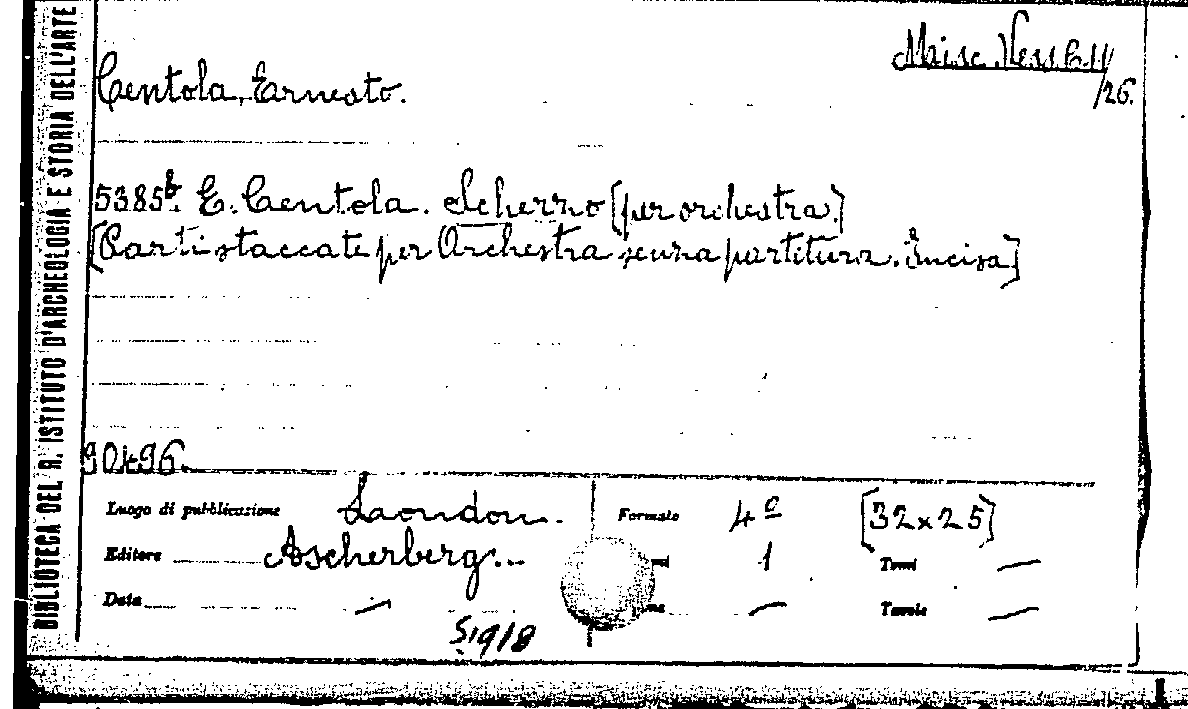 BIBLIOTECA DEL R. ISTITUTO D'ARCHEOLOGIA E STORIA DELL'ARTE
Misc. Vess. C. 11/26.
Centola, Ernesto.
5385b. E. Centola. Scherzo [per orchestra.]
[Parti staccate per Orchestra senza partitura. Incisa]
90496.
Luogo di pubblicazione London. Formato 4º [32x25]
Editore Ascherberg... 1 Tomi —
Data — — Tavole —